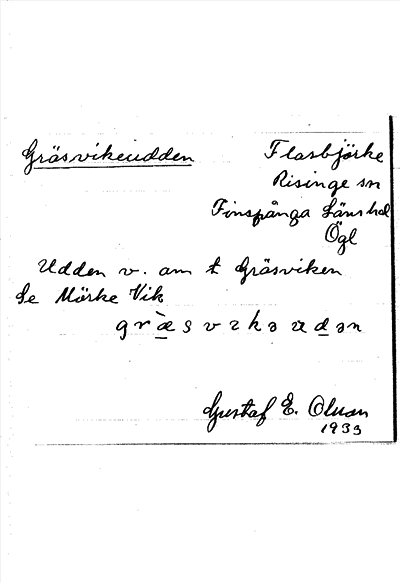 Gräsvikeudden
Flasbjörke
Risinge sn
Finspånga Länshd
Ögl
Udden v. om t Gräsviken
Se Mörke Vik
græsvikəudən
Gustaf E. Olson
1933